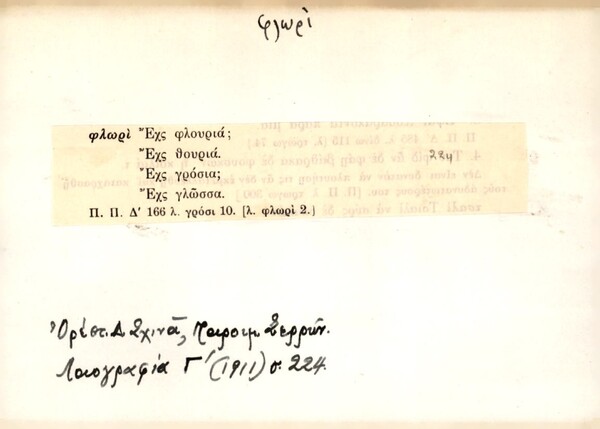 φλωρὶ
φλωρὶ Ἔχς φλουριά;
Ἔχς θουριά.
224
Ἔχς γρόσια;
Ἔχς γλῶσσα.
Π. Π. Δ′ 166 λ. γρόσι 10. [λ. φλωρὶ 2.]
Ὀρέστ. Δ. Σχινᾶ, Παροιμ. Σερρῶν.
Λαογραφία Γ′ (1911) σ. 224.